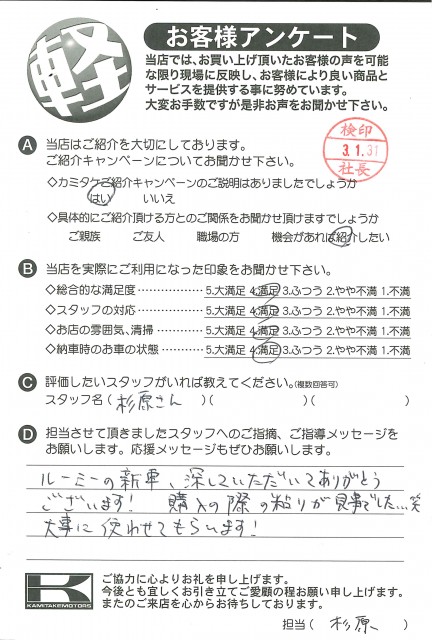 軽
お客様アンケート
当店では、お買い上げ頂いたお客様の声を可能
な限り現場に反映し、お客様により良い商品と
サービスを提供する事に努めています。
大変お手数ですが是非お声をお聞かせ下さい。
検印
3.1.31
社長
A 当店はご紹介を大切にしております。
ご紹介キャンペーンについてお聞かせ下さい。
◇カミタケご紹介キャンペーンのご説明はありましたでしょうか
はい いいえ
◇具体的にご紹介頂ける方とのご関係をお聞かせ頂けますでしょうか
ご親族 ご友人 職場の方 機会があれば紹介したい
B 当店を実際にご利用になった印象をお聞かせ下さい。
◇総合的な満足度………………5.大満足 4.満足 3.ふつう 2.やや不満 1.不満
◇スタッフの対応………………5.大満足 4.満足 3.ふつう 2.やや不満 1.不満
◇お店の雰囲気、清掃…………5.大満足 4.満足 3.ふつう 2.やや不満 1.不満
◇納車時のお車の状態…………5.大満足 4.満足 3.ふつう 2.やや不満 1.不満
C 評価したいスタッフがいれば教えてください。(複数回答可)
スタッフ名( 杉原さん )( )( )
D 担当させて頂きましたスタッフへのご指摘、ご指導メッセージを
お願いします。応援メッセージもぜひお願いします。
ルーミーの新車、探していただいてありがとう
ございます! 購入の際の粘りが見事でした…笑
大事に使わせてもらいます!
K
KAMITAKEMOTORS
ご協力に心よりお礼を申し上げます。
今後とも宜しくお引き立てご愛顧の程お願い申し上げます。
またのご来店を心からお待ちしております。
担当( 杉原 )